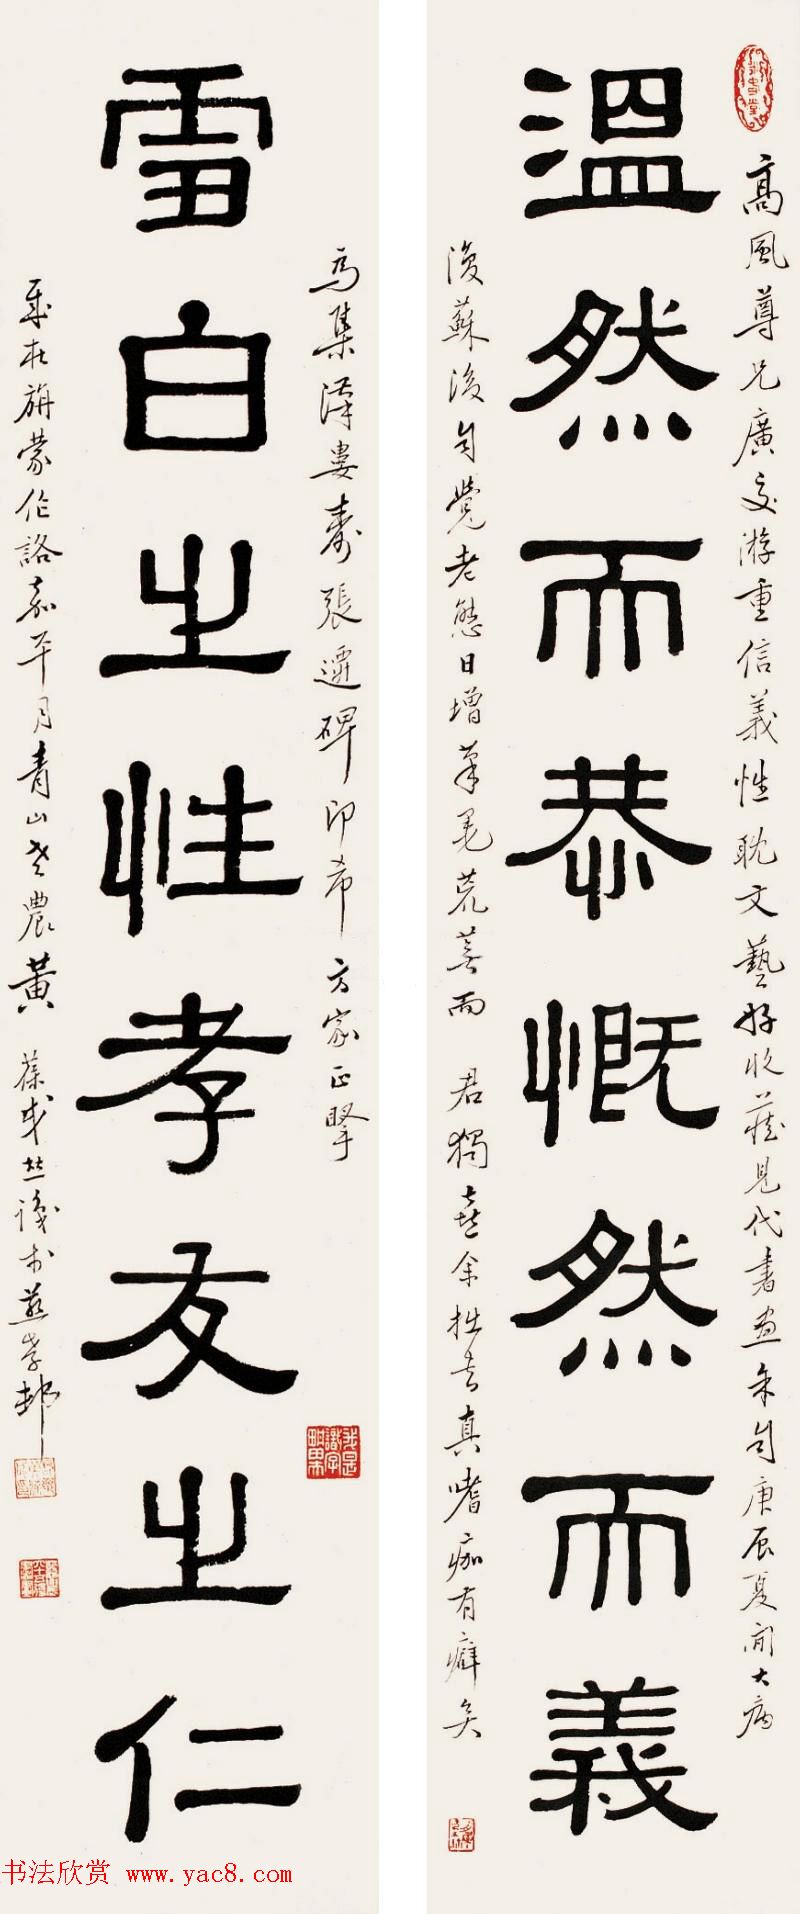 高風尊兄廣交游重信義性耽文藝好收藏見代書畫余自庚辰夏間大病
溫然而恭慨然而義
後蘇後自覺老態日增筆墨荒蕪而 君獨喜余拙書真嗜痂有癖矣
為集漢婁壽張遷碑印希方家正擘
雪白之性孝友之仁
歲在旃蒙作詻嘉平月青山老農黃葆戉並識於燕孝邨
我是識字耕田夫
书法欣赏 www.yac8.com